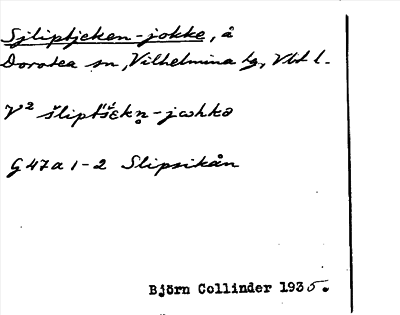 Sjliptjeken-jokke, å
Dorotea sn, Vilhelmina tg, Vbt l.
V² šliptšεkn̥-jωhkə
G 47a 1-2 Slipsikån
Björn Collinder 1935.